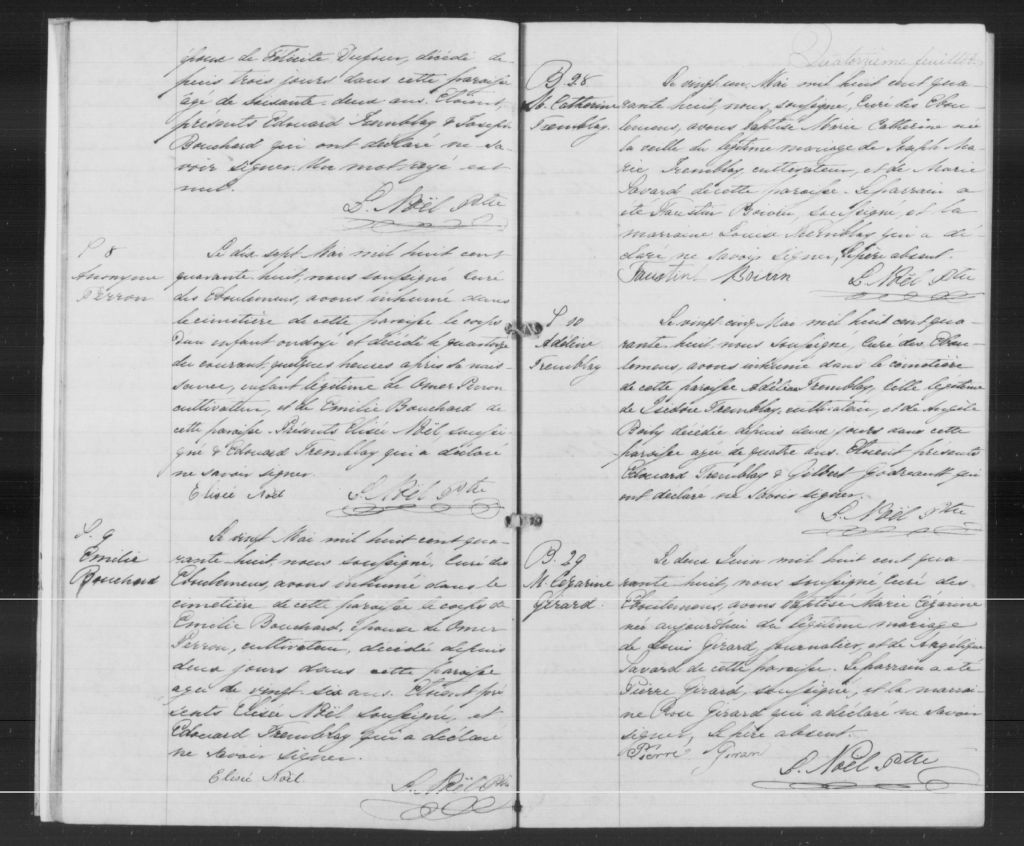 époux de Félicité Dufour, décédé de-
puis trois jours dans cette paroisse
âgé de soixante-deux ans. Etoient
présents Edouard Tremblay & Joseph
Bouchard qui ont déclaré ne sa-
voir signer. Un mot rayé est
nul.
L. Noël Ptre
S 8
Anonyme
Perron
Le dix sept Mai mil huit cent
quarante huit, nous soussigné Curé
des Eboulemens, avons inhumé dans
le cimetière de cette paroisse le corps
d'un enfant ondoyé et décédé le quatorze
du courant quelques heures après sa nais-
sance, enfant légitime de Omer Perron
cultivateur, et de Emilie Bouchard de
cette paroisse. Présents Elisée Noël, soussi-
gné & Edouard Tremblay qui a déclaré
ne savoir signer.
Elisée Noël
L. Noël Ptre
S. 9
Emilie
Bouchard
Le vingt Mai mil huit cent qua-
rante-huit, nous soussigné, Curé des
Eboulemens, avons inhumé dans le
cimetière de cette paroisse le corps de
Emilie Bouchard, épouse de Omer
Perron, cultivateur, décédée depuis
deux jours dans cette paroisse
agée de vingt-six ans. Etoient pré-
sents Elisée Noël soussigné, et
Edouard Tremblay qui a déclaré
ne savoir signer.
Elisé Noël
L. Noël Ptre
Quatorzième feuillet
B. 28
M. Catherine
Tremblay
Le vingt un Mai mil huit cent qua-
rante huit, nous, soussigné, Curé des Ebou-
lemens, avons baptisé Marie Catherine née
la veille du légitime mariage de Joseph Ma-
rie Tremblay cultivateur, et de Marie
Savard de cette paroisse. Le parrain a
été Faustin Boivin, soussigné, et la
marraine Louise Tremblay qui a dé-
claré ne savoir signer, le père absent.
Faustin Boivin
L. Noël Ptre
S 10
Adéline
Tremblay
Le vingt cinq Mai mil huit cent qua-
rante-huit, nous soussigné, Curé des Ebou-
lemens, avons inhumé dans le cimetière
de cette paroisse Adéline Tremblay, fille légitime
de Isidore Tremblay, cultivateur, et de Angèle
décédée depuis deux jours dans cette
paroisse agée de quatre ans. Etoient présents
Edouard Tremblay & Gilbert Godreault qui
ont déclaré ne savoir signer.
L. Noël Ptre
B. 29
M. Cézarine
Girard.
Le deux Juin mil huit cent qua-
rante-huit, nous soussigné Curé des
Eboulemens, avons baptisé Marie Cézarine
née aujourd'hui du légitime mariage
de Louis Girard, journalier, et de Angélique
Savard de cette paroisse. Le parrain a été
Pierre Girard, soussigné, et la marrai-
ne Rose Girard qui a déclaré ne savoir
signer, le père absent.
Pierre Girar
L. Noël Ptre